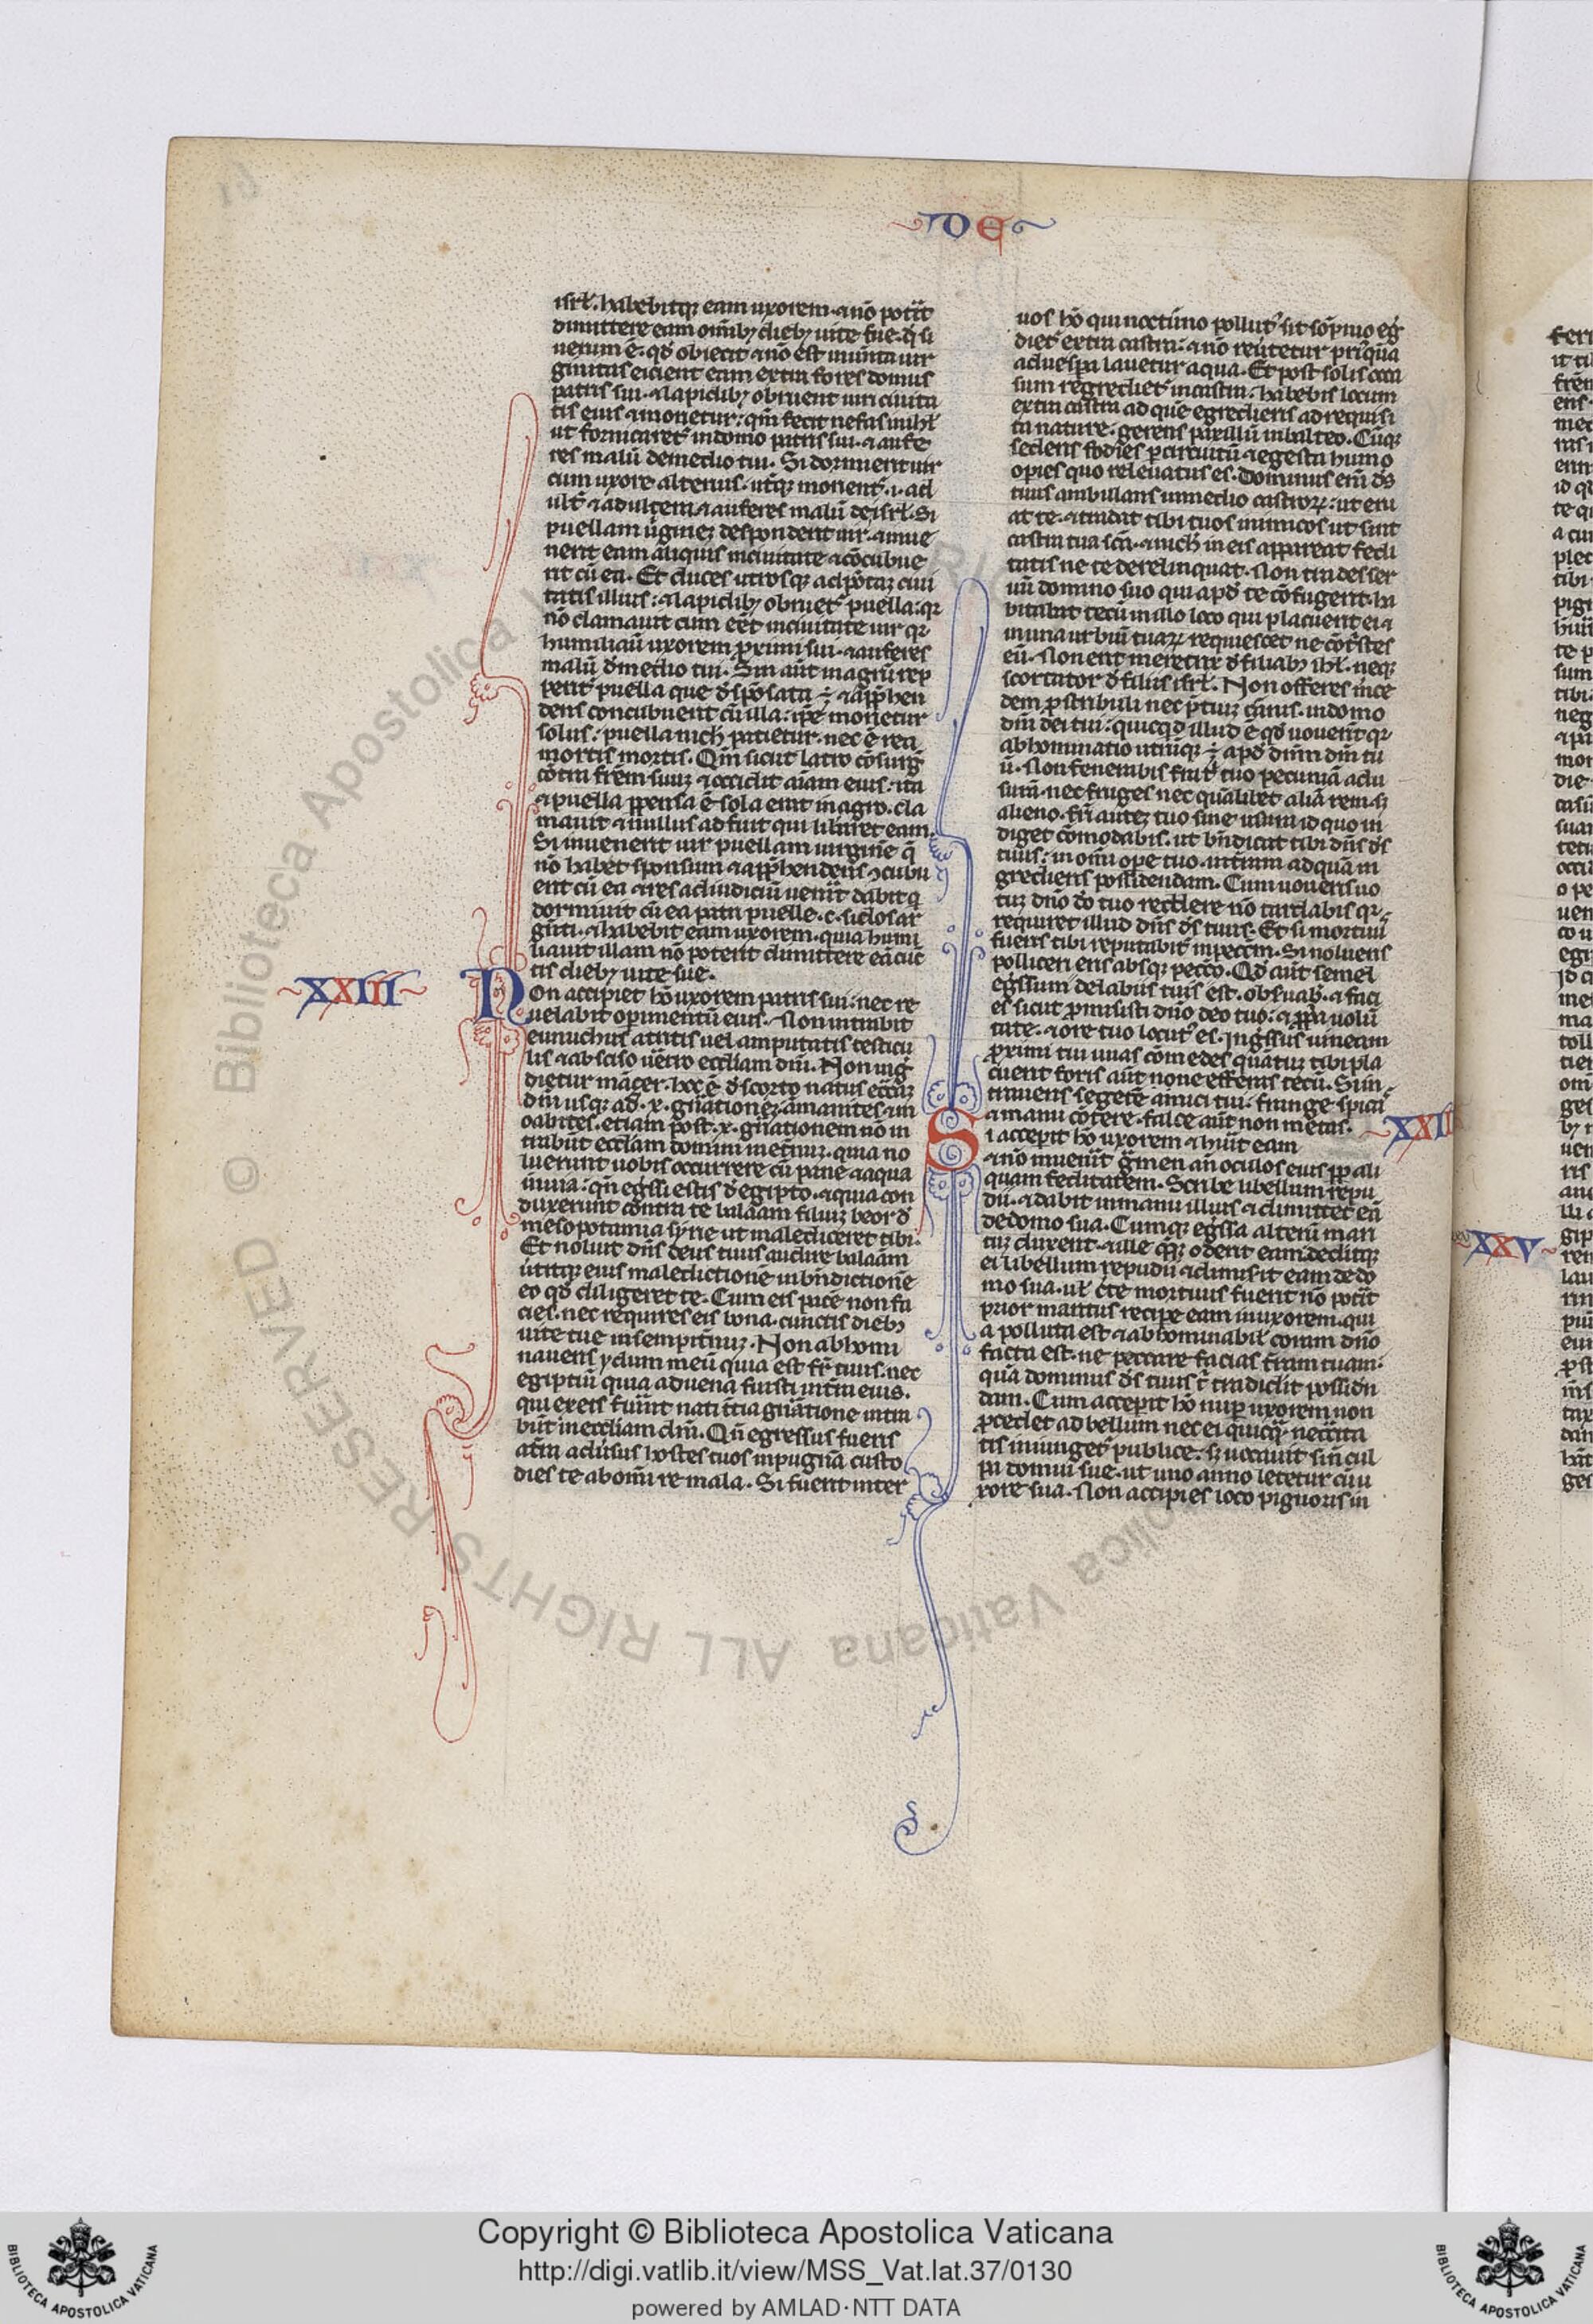 DE
isrł. habebitqꝫ eam uxorem ⁊ nō potīt
dimittere eam omībꝫ diebꝫ uite sue. qd̓ si
uerum ē. qd̓ obiecit ⁊ nō est inuēta uir
ginitas eicient eam extra fores domus
patris sui. ⁊ lapidibꝫ obruent uiri ciuita
tis eius ⁊ morietur: qm̄ fecit nefas in isrł
ut fornicaret᷑ in domo patris sui. ⁊ aufe
res malū de medio tui. Si dormierit uir
cum uxore alterius. utqꝫ morient᷑. i. ad
ult᷑ ⁊ adultera. ⁊ auferes malū de isrł. Si
puellam ūginez desponderit uir. ⁊ inue
nerit eam aliquis in ciuitate ⁊ cōcubue
rit cū ea. Et duces utrosqꝫ ad portaꝫ ciui
tatis illius: ⁊ lapidibꝫ obruet᷑. puella: qꝛ
nō clamauit cum eēt in ciuitate uir qꝛ
humiliauit uxorem proximi sui. ⁊ auferes
malū de medio tui. Sin aūt in agrū rep
perit puella que d̓sponsata ÷ ⁊ app̄hen
dens concubuerit cū illa: ipse morietur
solus: puella nich̓ patietur. nec ē rea
mortis mortis. Qm̄ sicut latro cōsurg̓
cōtra fr̄em suuꝫ ⁊ occidit aīam eius: ita
⁊ puella ꝑpensa ē sola erat in agro. cla
mauit ⁊ nullus adfuit qui libraret eam.
Si inuenerit uir puellam uirginē q̄
nō habet sponsum ⁊ app̄hendens ɔcubu
erit cū ea ⁊ res ad iudiciū uenīt dabit q̄
dormiuit cū ea patri puelle. c. siclos ar
gēti. ⁊ habebit eam uxorem. quia humi
liauit illam nō poterit dimittere eā cūc
tis diebꝫ uite sue.
XXIII
Non accipiet hō uxorem patris sui: nec re
uelabit operimentū eius. Non intrabit
eunuchus atritis uel amputatis testicu
lis ⁊ absciso ūetro eccl̄iam dn̄i. Non ing̓
dietur māzer. hoc ē d̓ scorto natus eccl̄iaꝫ
dn̄i usqꝫ ad. x. gn̄ationeꝫ. amanites ⁊ m
oabites. etiam post. x. gn̄ationem nō in
trabūt eccl̄iam domini in et̄nuꝫ. quia no
luerunt uobis occurrere cū pane ⁊ aqua
in uia: qn̄ eg̓ssi estis d̓ egipto. ⁊ quia con
duxerunt contra te balaam filiuꝫ beor d̓
mesopotamia syrie ut malediceret tibi.
Et noluit dn̄s deus tuus audire balaam
ūtitqꝫ eius maledictionē in bn̄dictionē
eo qd̓ diligeret te. Cum eis pacē non fa
cies. nec requires eis bona. cunctis diebꝫ
uite tue in sempit̄nuꝫ. Non abhomi
naueris ydum meū quia est fr̄ tuus. nec
egiptiū quia aduena fuisti in tr̄ra eius.
qui ex eis fuīnt nati t̄tia gn̄atione intra
būt in eccl̄iam dn̄i. Qn̄ egressus fueris
at̄m adūsus hostes tuos in pugnā custo
dies te ab omī re mala. Si fuerit inter
uos hō qui nocturno pollut᷑ sit sōpnio eg̓
diet᷑ extra castra: ⁊ nō reūtetur priusquā
ad uesp̄a lauetur aqua. Et post solis occa
sum regrediet᷑ in castra. habebis locum
extra castra ad quē egredieris ad requisi
ta nature. gerens paxillū in balteo. Cūqꝫ
sederis fodies ꝑ circuitū ⁊ egesta humo
operies quo releuatus es. Dominus enī ds̄
tuus ambulans in medio castroꝝ: ut eru
at te. ⁊ tradat tibi tuos inimicos ut sint
castra tua sc̄a. ⁊ nich̓ in eis appareat fedi
tatis ne te derelinquat. Non trades ser
uū domino suo qui apd̓ te cōfugerit. ha
bitabit tecū in illo loco qui placuerit ei ⁊
in una urbiū tuaꝝ requiescet ne cōt̓stes
eū. Non erit meretrix d̓ filiabꝫ isrł. neqꝫ
scortator d̓ filiis isrł. Non offeres m̄ce
dem prostribuli nec p̄tiuꝫ canis. in domo
dn̄i dei tui: quicqd̓ illud ē qd̓ uouerit qꝛ
abhominatio utrūqꝫ ÷ apd̓ dn̄m dm̄ tu
ū. Non fenerabis fratri tuo pecuniā ad u
surā. nec fruges nec quālibet aliā rem. sꝫ
alieno. fr̄i auteꝫ tuo sine usura id quo in
diget cōmodabis. ut bn̄dicat tibi dn̄s ds̄
tuus: in omī ope tuo. in t̄rram ad quā in
gredieris possidendam. Cum uoueris uo
tuꝫ dn̄o do̅ tuo reddere nō tardabis qꝛ
requiret illud dn̄s ds̄ tuus. Et si moratus
fueris tibi reputabit᷑ in pecc̄m. Si nolueris
polliceri eris absqꝫ pecc̄o. Qd̓ aūt semel
eg̓ssum de labiis tuis est. obs̄uab̓. ⁊ faci
es sicut promisisti dn̄o deo tuo: ⁊ ꝓp̄a uolū
tate. ⁊ ore tuo locut᷑ es. Ing̓ssus uineam
proximi tui uuas comedes quātuꝫ tibi pla
cuerit foris aūt none efferas tecū. Si in
traueris segetē amici tui: frange spicas
⁊ manu cōtere. falce aūt non metas.
XXII
Si accepit hō uxorem ⁊ hūit eam
⁊ nō inuenīt gr̄men an̄ oculos eius ꝓp̄ ali
quam feditatem. Scribe libellum repu
dii. ⁊ dabit in manu illius ⁊ dimittet eā
de domo sua. Cumqꝫ eg̓ssa alterū mari
tuꝫ duxerit. ⁊ ille q̄qꝫ oderit eam. dedītqꝫ
ei libellum repudii ⁊ dimisit eam de do
mo sua. ul̓ c̄te mortuus fuerit nō potīt
prior maritus recipe eam in uxorem. qui
a polluta est ⁊ abhominabil̓ coram dn̄o
facta est. ne peccare facias t̄ram tuam.
quā dominus ds̄ tuus t̄ tradidit possidn
dam. Cum accepit hō nup̄ uxorem non
ꝓcedet ad bellum nec ei quicqꝫ neccīta
tis iniunget᷑ publice. sꝫ uccauit sin̄ cul
pa domui sue. ut uno anno letetur cū u
xore sua. Non accipies loco pignoris in
XXV
Copyright © Biblioteca Apostolica Vaticana
http://digi.vatlib.it/view/MSS_Vat.lat.37/0130
powered by AMLAD·NTT DATA
BIBLIOTECA APOSTOLICA VATICANA
BIBLIOTECA APOSTOLICA VATICANA